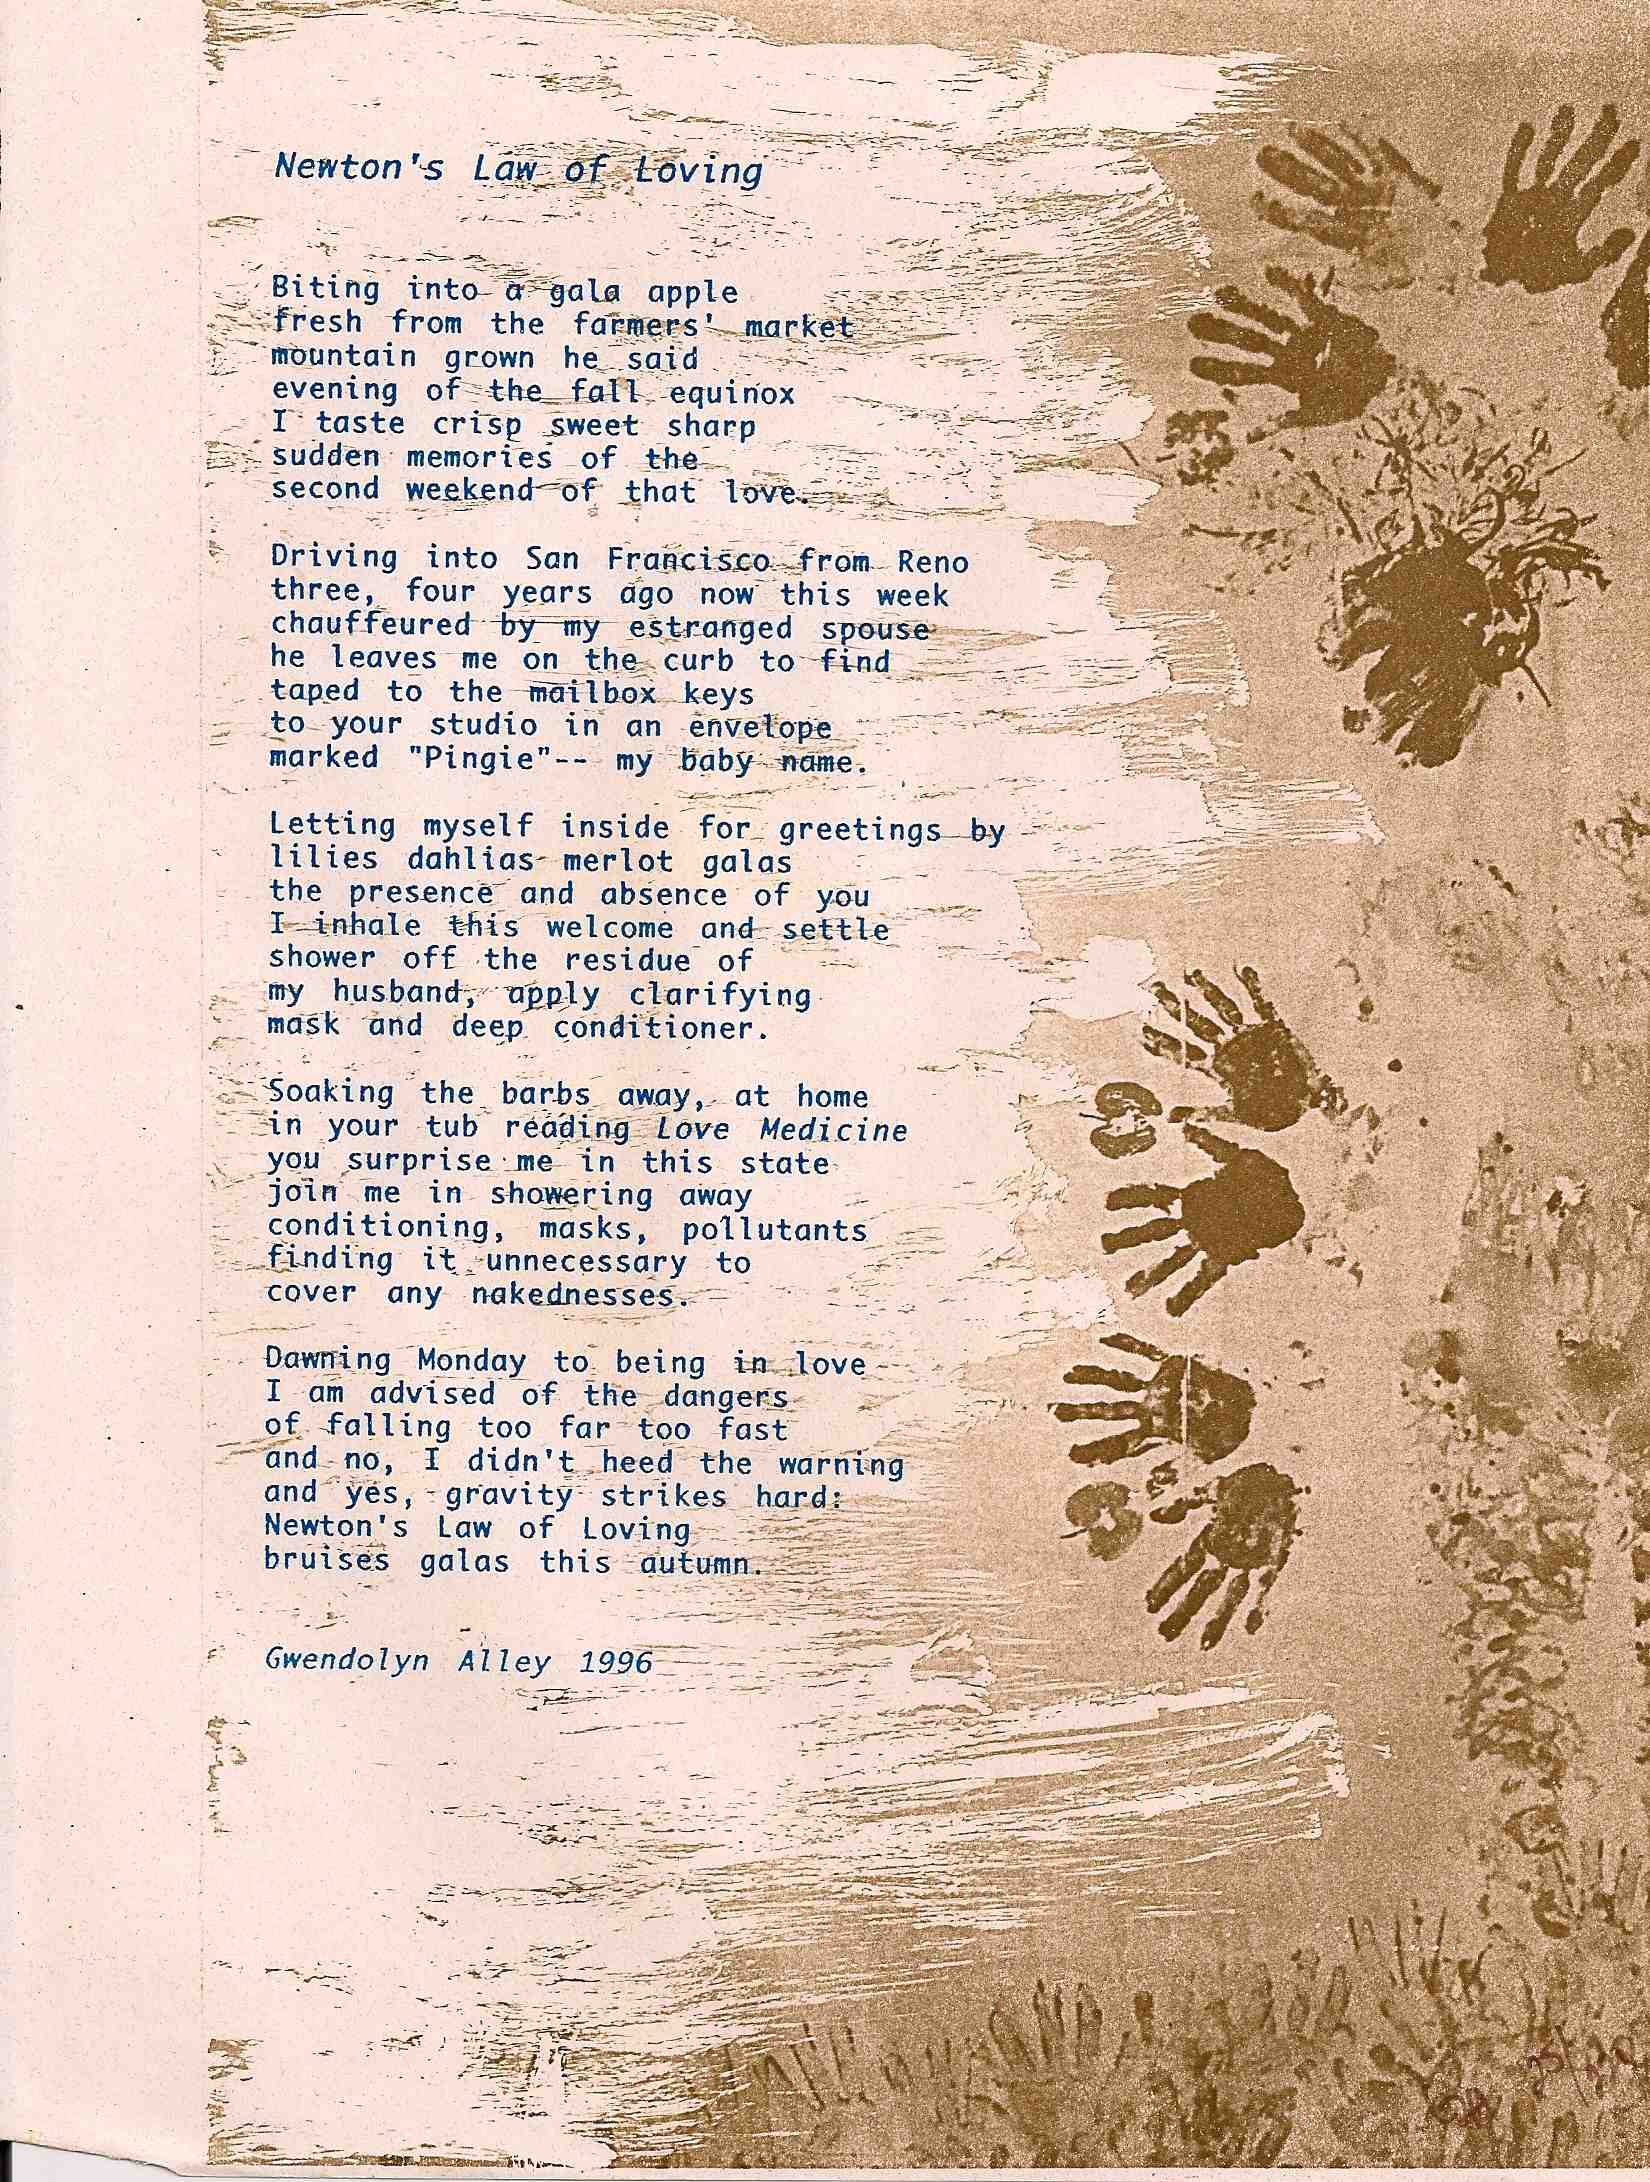 Newton's Law of Loving
Biting into a gala apple
fresh from the farmers' market
mountain grown he said
evening of the fall equinox
I taste crisp sweet sharp
sudden memories of the
second weekend of that love.
Driving into San Francisco from Reno
three, four years ago now this week
chauffeured by my estranged spouse
he leaves me on the curb to find
taped to the mailbox keys
to your studio in an envelope
marked "Pingie"-- my baby name.
Letting myself inside for greetings by
lilies dahlias merlot galas
the presence and absence of you
I inhale this welcome and settle
shower off the residue of
my husband, apply clarifying
mask and deep conditioner.
Soaking the barbs away, at home
in your tub reading Love Medicine
you surprise me in this state
join me in showering away
conditioning, masks, pollutants
finding it unnecessary to
cover any nakednesses.
Dawning Monday to being in love
I am advised of the dangers
of falling too far too fast
and no, I didn't heed the warning
and yes, gravity strikes hard:
Newton's Law of Loving
bruises galas this autumn.
Gwendolyn Alley 1996